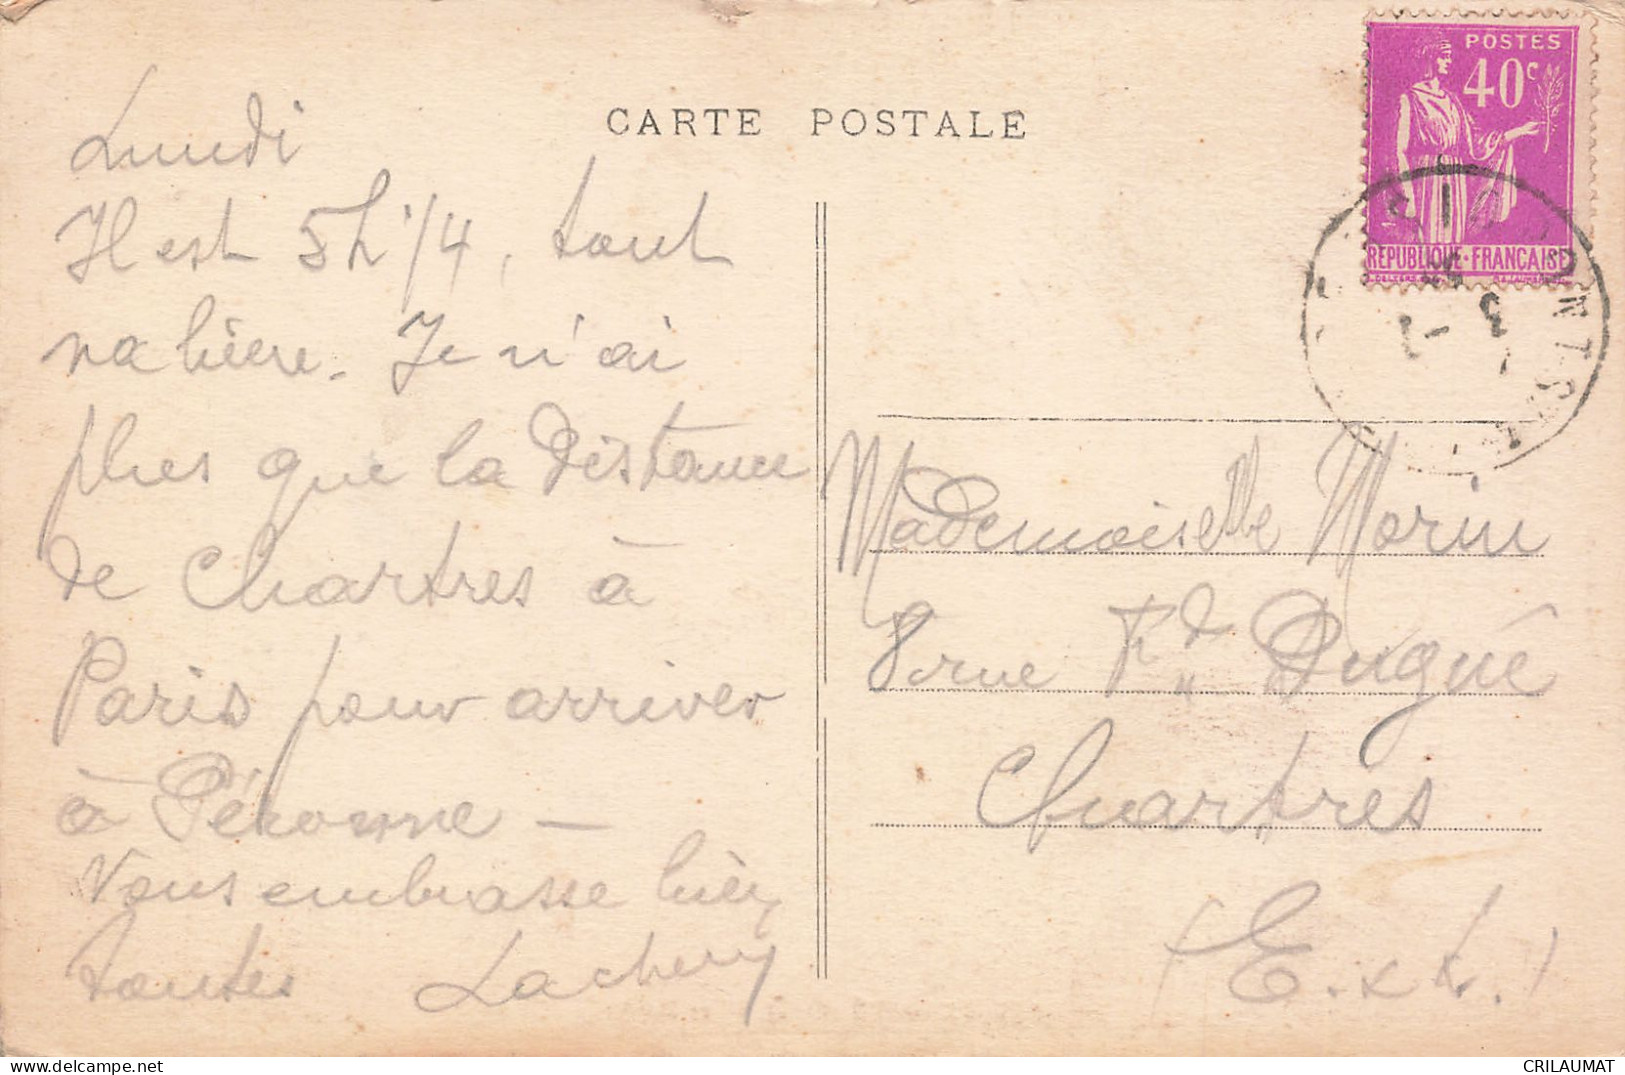 CARTE POSTALE
POSTES
40c
REPUBLIQUE·FRANÇAISE
Lundi
Il est 5h 1/4, tout
va bien. Je n'ai
plus que la distance
de Chartres à
Paris pour arriver
à Péronne —
Vous embrasse bien
toutes
Mademoiselle Morin
8 rue Fd Dugué
Chartres
(E.&L.)
CRILAUMAT